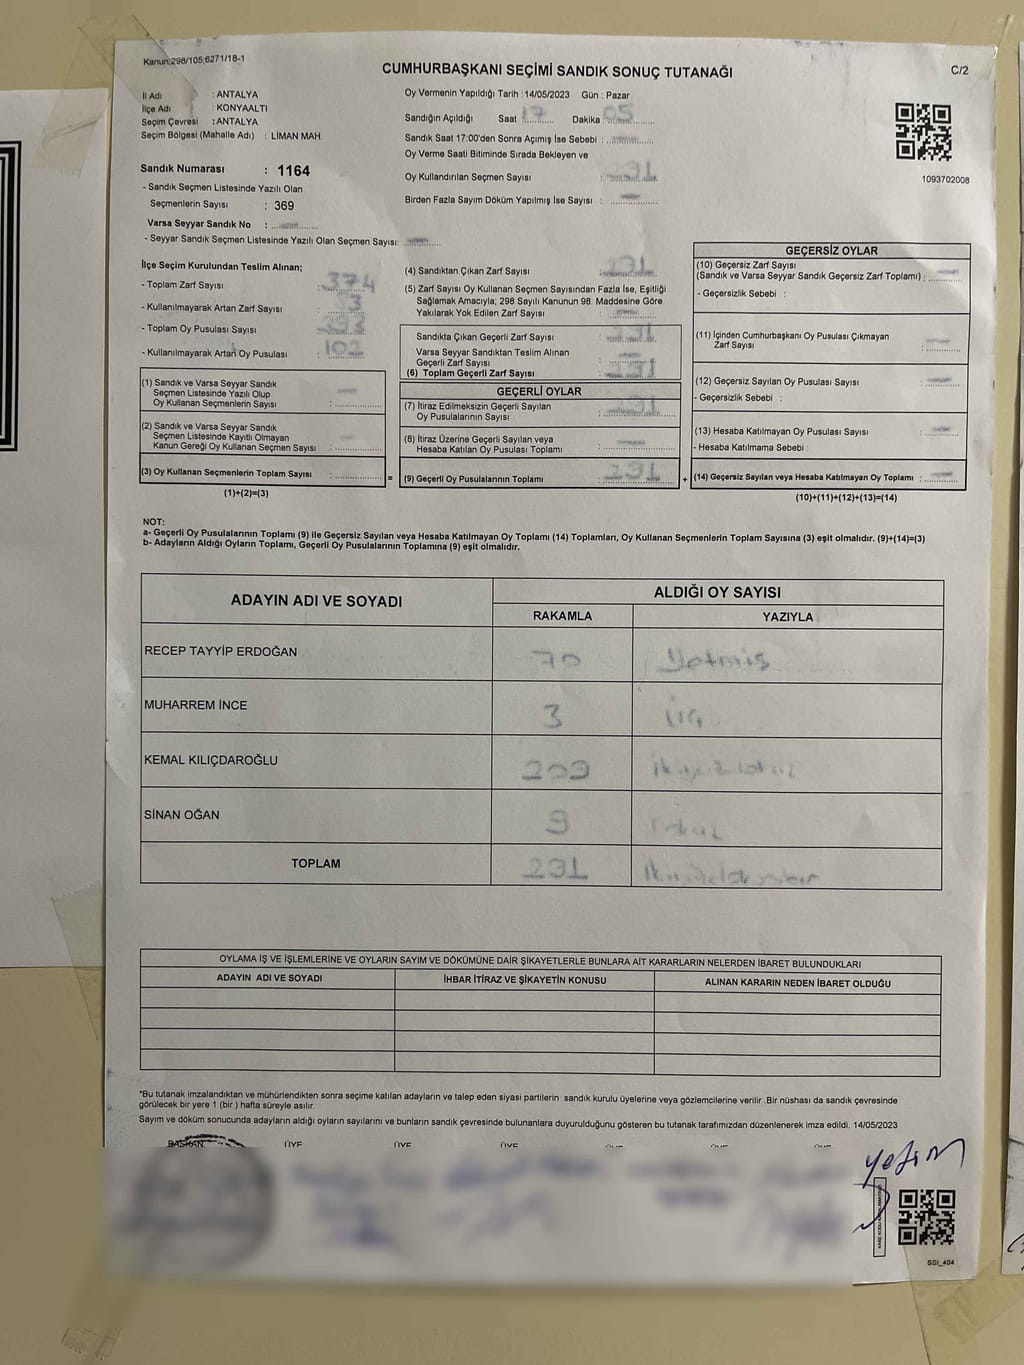 Kanun;298/105,6271/18-1
CUMHURBAŞKANI SEÇİMİ SANDIK SONUÇ TUTANAĞI
C/2
İl Adı : ANTALYA
İlçe Adı : KONYAALTI
Seçim Çevresi : ANTALYA
Seçim Bölgesi (Mahalle Adı) : LİMAN MAH.
Sandık Numarası : 1164
- Sandık Seçmen Listesinde Yazılı Olan
Seçmenlerin Sayısı : 369
Varsa Seyyar Sandık No :
- Seyyar Sandık Seçmen Listesinde Yazılı Olan Seçmen Sayısı:
Oy Vermenin Yapıldığı Tarih : 14/05/2023 Gün : Pazar
Sandığın Açıldığı Saat 17 Dakika 05
Sandık Saat 17:00'den Sonra Açımış İse Sebebi :
Oy Verme Saati Bitiminde Sırada Bekleyen ve
Oy Kullandırılan Seçmen Sayısı :
Birden Fazla Sayım Döküm Yapılmış İse Sayısı :
1093702008
İlçe Seçim Kurulundan Teslim Alınan;
- Toplam Zarf Sayısı : 374
- Kullanılmayarak Artan Zarf Sayısı :
- Toplam Oy Pusulası Sayısı :
- Kullanılmayarak Artan Oy Pusulası : 102
(1) Sandık ve Varsa Seyyar Sandık
Seçmen Listesinde Yazılı Olup
Oy Kullanan Seçmenlerin Sayısı :
(2) Sandık ve Varsa Seyyar Sandık
Seçmen Listesinde Kayıtlı Olmayan
Kanun Gereği Oy Kullanan Seçmen Sayısı :
(3) Oy Kullanan Seçmenlerin Toplam Sayısı :
(1)+(2)=(3)
=
(4) Sandıktan Çıkan Zarf Sayısı
(5) Zarf Sayısı Oy Kullanan Seçmen Sayısından Fazla İse, Eşitliği
Sağlamak Amacıyla; 298 Sayılı Kanunun 98. Maddesine Göre
Yakılarak Yok Edilen Zarf Sayısı :
Sandıkta Çıkan Geçerli Zarf Sayısı
Varsa Seyyar Sandıktan Teslim Alınan
Geçerli Zarf Sayısı
(6) Toplam Geçerli Zarf Sayısı
GEÇERLİ OYLAR
(7) İtiraz Edilmeksizin Geçerli Sayılan
Oy Pusulalarının Sayısı
(8) İtiraz Üzerine Geçerli Sayılan veya
Hesaba Katılan Oy Pusulası Toplamı
(9) Geçerli Oy Pusulalarının Toplamı
+
GEÇERSİZ OYLAR
(10) Geçersiz Zarf Sayısı
(Sandık ve Varsa Seyyar Sandık Geçersiz Zarf Toplamı) :
- Geçersizlik Sebebi :
(11) İçinden Cumhurbaşkanı Oy Pusulası Çıkmayan
Zarf Sayısı
(12) Geçersiz Sayılan Oy Pusulası Sayısı :
- Geçersizlik Sebebi :
(13) Hesaba Katılmayan Oy Pusulası Sayısı :
- Hesaba Katılmama Sebebi :
(14) Geçersiz Sayılan veya Hesaba Katılmayan Oy Toplamı :
(10)+(11)+(12)+(13)=(14)
NOT:
a- Geçerli Oy Pusulalarının Toplamı (9) ile Geçersiz Sayılan veya Hesaba Katılmayan Oy Toplamı (14) Toplamları, Oy Kullanan Seçmenlerin Toplam Sayısına (3) eşit olmalıdır. (9)+(14)=(3)
b- Adayların Aldığı Oyların Toplamı, Geçerli Oy Pusulalarının Toplamına (9) eşit olmalıdır.
ADAYIN ADI VE SOYADI
ALDIĞI OY SAYISI
RAKAMLA YAZIYLA
RECEP TAYYİP ERDOĞAN 70 Yetmiş
MUHARREM İNCE 3 üç
KEMAL KILIÇDAROĞLU 209
SİNAN OĞAN 9
TOPLAM
OYLAMA İŞ VE İŞLEMLERİNE VE OYLARIN SAYIM VE DÖKÜMÜNE DAİR ŞİKAYETLERLE BUNLARA AİT KARARLARIN NELERDEN İBARET BULUNDUKLARI
ADAYIN ADI VE SOYADI İHBAR İTİRAZ VE ŞİKAYETİN KONUSU ALINAN KARARIN NEDEN İBARET OLDUĞU
*Bu tutanak imzalandıktan ve mühürlendikten sonra seçime katılan adayların ve talep eden siyasi partilerin sandık kurulu üyelerine veya gözlemcilerine verilir .Bir nüshası da sandık çevresinde
görülecek bir yere 1 (bir ) hafta süreyle asılır.
Sayım ve döküm sonucunda adayların aldığı oyların sayılarını ve bunların sandık çevresinde bulunanlara duyurulduğunu gösteren bu tutanak tarafımızdan düzenlenerek imza edildi. 14/05/2023
BAŞKAN ÜYE ÜYE ÜYE
SSI_404